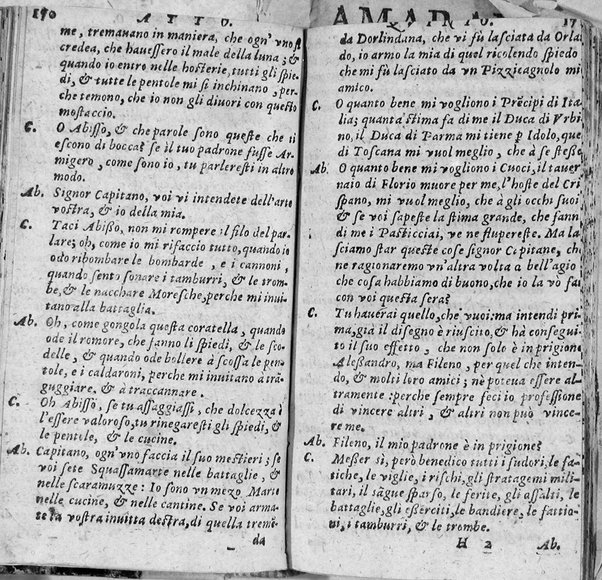 170 ATTO.
me, tremauano in maniera, che ogn' vno si
credea, che hauessero il male della luna; &
quando io entro nelle hosterie, tutti gli spie-
di, & tutte le pentole mi si inchinano, per-
che temono, che io non gli diuori con questo
mostaccio.
C. O Abisso, & che parole sono queste che ti
escono di bocca? se il tuo padrone fusse Ar-
migero, come sono io, tu parleresti in altro
modo.
Ab. Signor Capitano, voi vi intendete dell'arte
vostra, & io della mia.
C. Taci Abisso, non mi rompere il filo del par-
lare; oh, come io mi rifaccio tutto, quando io
odo ribombare le bombarde, e i cannoni,
quando sento sonare i tamburri, & le trom-
be, & le nacchare Moresche, perche mi inui-
tano alla battaglia.
Ab. Oh, come gongola questa coratella, quando
ode il romore, che fanno li spiedi, & le sco-
delle, & quando ode bollere à scossa le pen-
tole, e i caldaroni, perche mi inuitano à tra-
guggiare, & à traccannare.
C. Oh Abisso, se tu assaggiassi, che dolcezza è
l'essere valoroso, tu rinegaresti gli spiedi, &
le pentole, & le cucine.
Ab. Capitano, ogn'vno faccia il suo mestieri; se
voi sete Squassamarte nelle battaglie, &
nelle scaramuzze: Io sono vn mezo Marte
nelle cucine, & nelle cantine. Se voi arma-
te la vostra inuitta destra, di quella tremi-
da
AMARA TO. 17
da Dorlindana, che vi fù lasciata da Orla-
do, io armo la mia di quel ricolendo spiedo
che mi fù lasciato da vn Pizzicagnolo mi
amico.
C. O quanto bene mi vogliono i Prẽcipi di Ita
lia; quanta stima fa di me il Duca di Vrbi
no, il Duca di Parma mi tiene p Idolo, que
di Toscana mi vuol meglio, che à se stesso
Ab. O quanto bene mi vogliono i Cuoci, il tauer
naio di Florio muore per me, l'hoste del Cri
spano, mi vuol meglio, che à gli occhi suoi
& se voi sapeste la stima grande, che fann
di me i Pasticciai, ve ne stupereste. Ma la
sciamo star queste cose Signor Capitano, ch
ne ragionaremo vn'altra volta a bell'agio
che cosa habbiamo di buono, che io la vò fa
con voi questa sera?
C. Tu hauerai quello, che vuoi: ma intendi pri
ma, già il disegno è riuscito, & hà consegui
to il suo effetto, che non sole è in prigione
Alessandro, ma Fileno, per quel che inten-
do, & molti loro amici; nè poteua essere al-
tramente: perche sempre feci io professione
di vincere altri, & altri non può vince-
re me.
Ab. Fileno, il mio padrone è in prigione?
C. Meßer sì, però benedico tutti i sudori, le fa-
tiche, le vigilie, i rischi, gli stratagemi mili-
tari, il sãgue sparso, le ferite, gli assalti, le
battaglie, gli eßerciti, le bandiere, le fattio-
ni, i tamburri, & le trombe.
H 2 Ab.